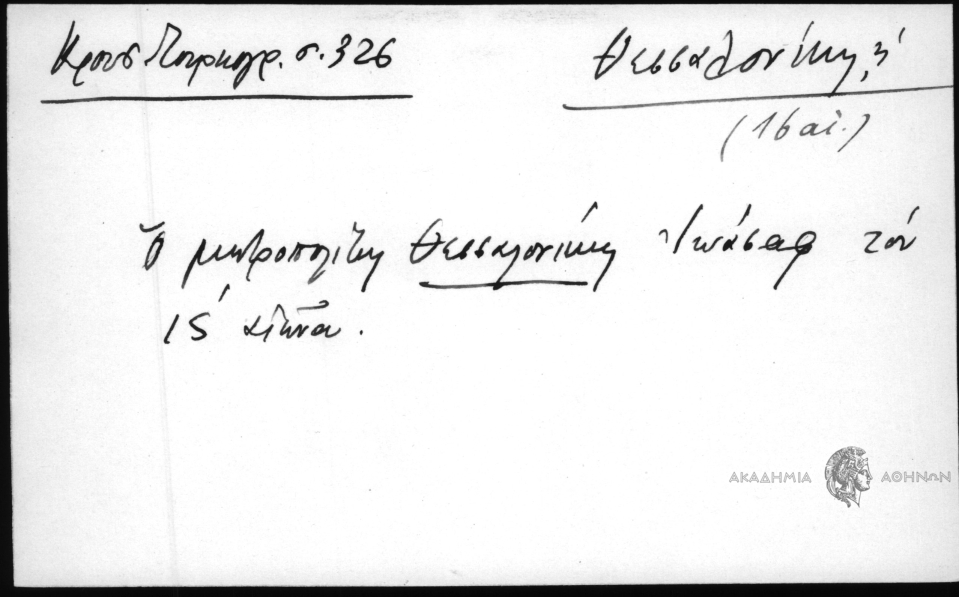 Κρουσ. Τουρκογρ. σ. 326
Θεσσαλονίκη, ἡ
(16 αἰ.)
Ὁ μητροπολίτης Θεσσαλονίκης Ἰωάσαφ τὸν
ΙS' αἰῶνα.
ΑΚΑΔΗΜΙΑ ΑΘΗΝΩΝ